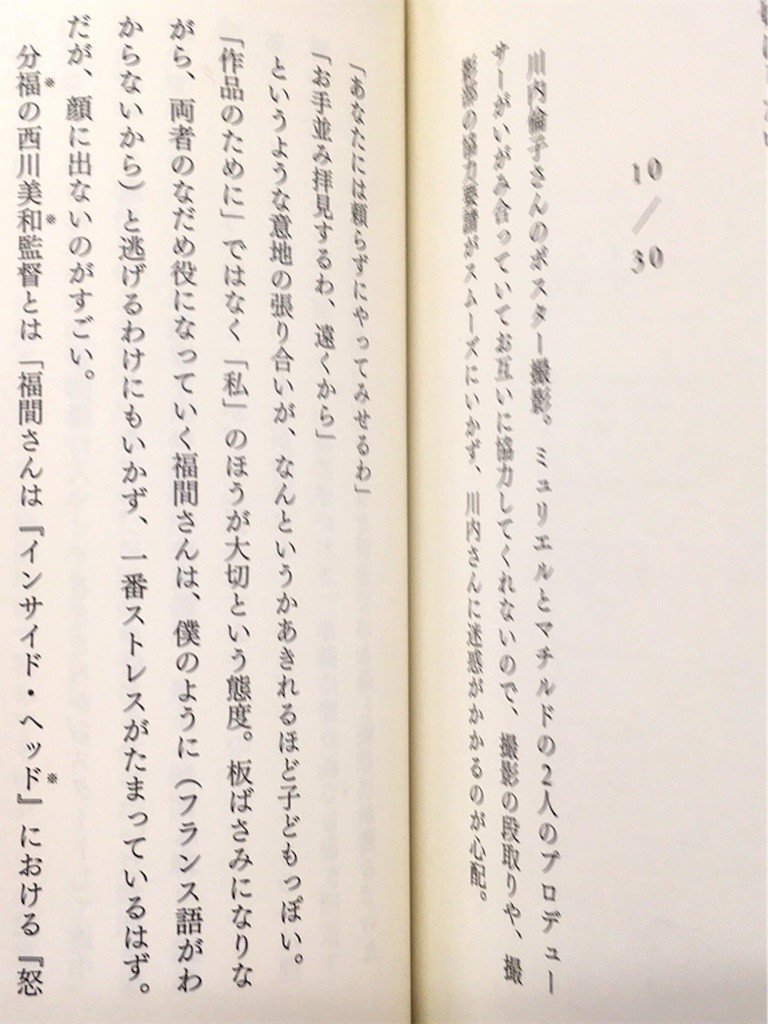 10/30
川内倫子さんのポスター撮影。ミュリエルとマチルドの2人のプロデュー
サーがいがみ合っていてお互いに協力してくれないので、撮影の段取りや、撮
影部の協力要請がスムーズにいかず、川内さんに迷惑がかかるのが心配。
「あなたには頼らずにやってみせるわ」
「お手並み拝見するわ、遠くから」
というような意地の張り合いが、なんというかあきれるほど子どもっぽい。
「作品のために」ではなく「私」のほうが大切という態度。板ばさみになりな
がら、両者のなだめ役になっていく福間さんは、僕のように（フランス語がわ
からないから）と逃げるわけにもいかず、一番ストレスがたまっているはず。
だが、顔に出ないのがすごい。
分福※の西川美和※監督とは「福間さんは『インサイド・ヘッド※』における『怒